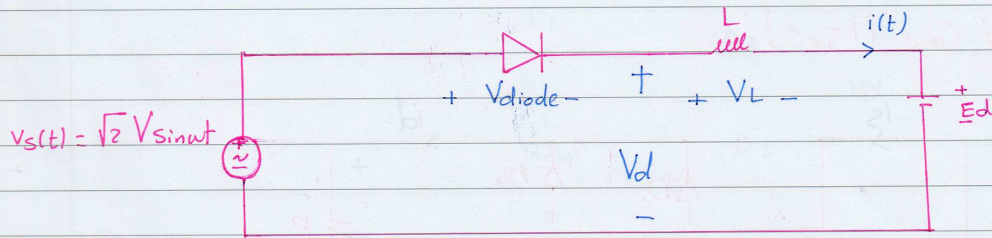 L
i(t)
+ Vdiode - + + VL - + Ed
vs(t) = √2 V sinωt +
~
Vd
-